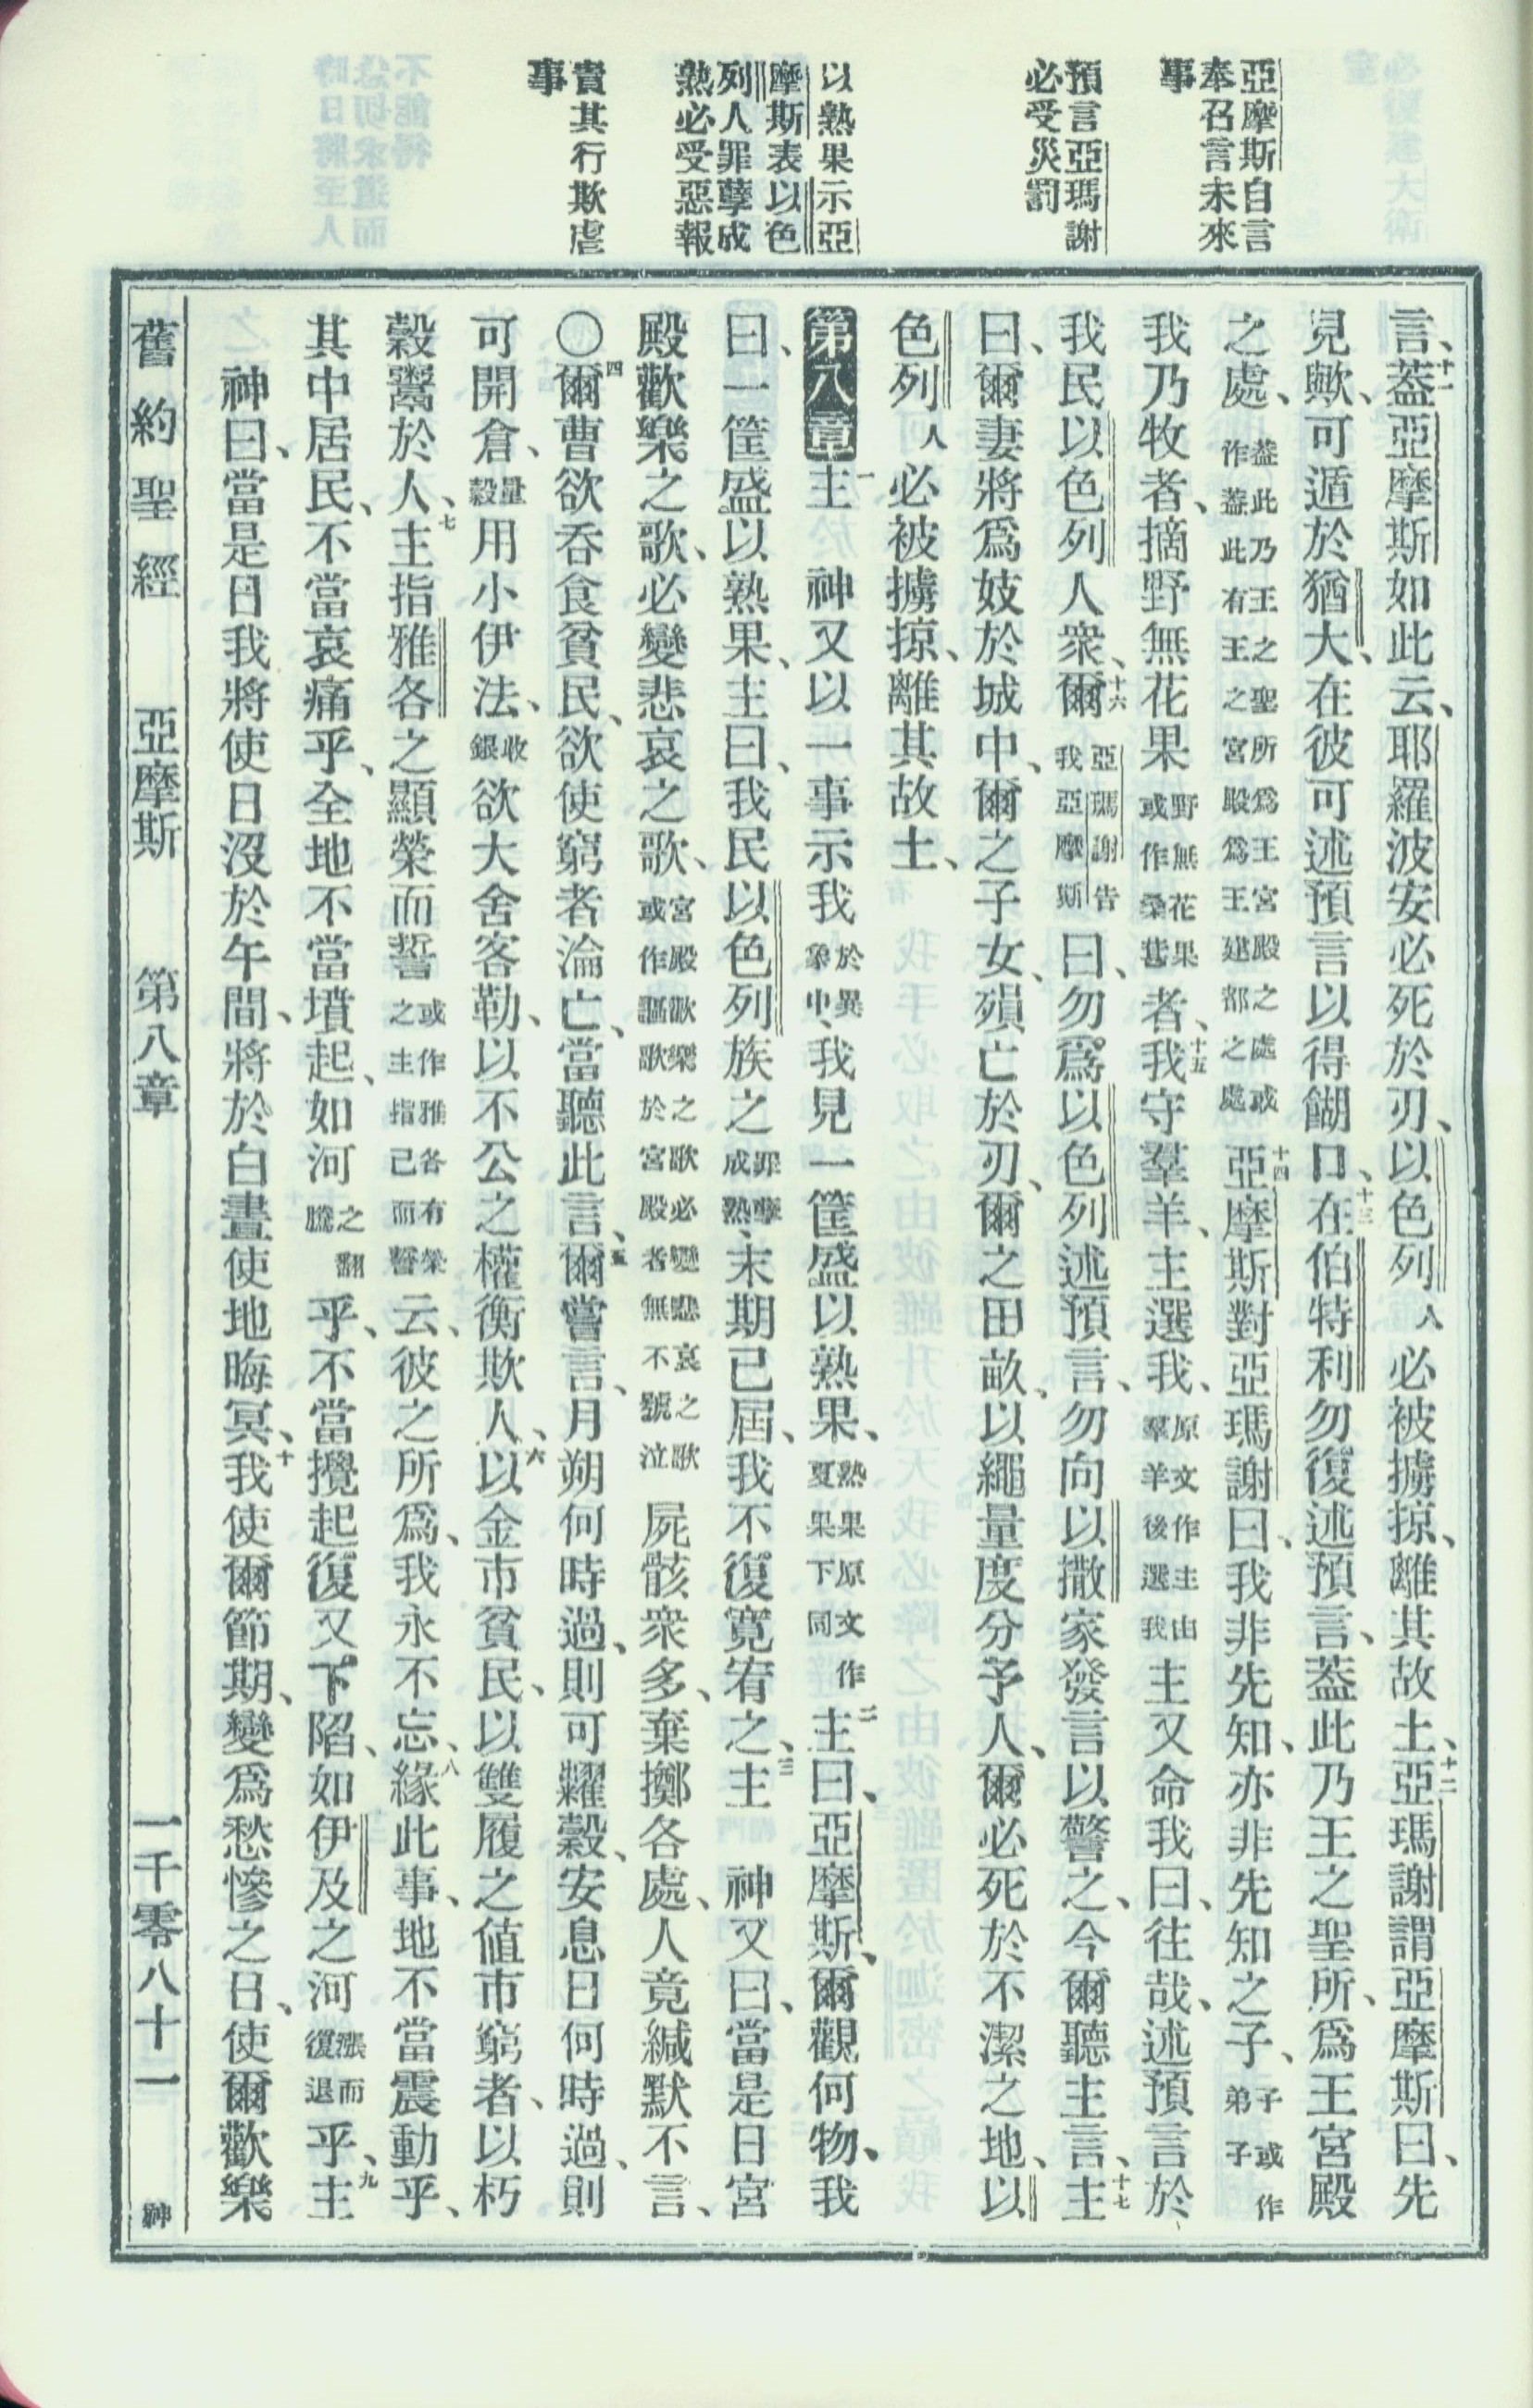 亞摩斯自言
奉召言未來
事
預言亞瑪謝
必受災罰
以熟果示亞
摩斯表以色
列人罪孽成
熟必受惡報
責其行欺虐
事
言、十一蓋亞摩斯如此云、耶羅波安必死於刃、以色列人必被擄掠、離其故土、十二亞瑪謝謂亞摩斯曰、先
見歟、可遁於猶大、在彼可述預言以得餬口、十三在伯特利勿復述預言、蓋此乃王之聖所、爲王宮殿
之處、蓋此乃王之聖所爲王宮殿之處或作蓋此有王之宮殿爲王建都之處十四亞摩斯對亞瑪謝曰、我非先知、亦非先知之子、子或作弟子
我乃牧者、摘野無花果野無花果或作桑葚者、十五我守羣羊、主選我、原文作主由羣羊後選我主又命我曰、往哉、述預言於
我民以色列人衆、十六爾亞瑪謝告我亞摩斯曰、勿爲以色列述預言、勿向以撒家發言以警之、今爾聽主言、十七主
曰、爾妻將爲妓於城中、爾之子女、殞亡於刃、爾之田畝、以繩量度分予人、爾必死於不潔之地、以
色列人必被擄掠、離其故土、
第八章一主神又以一事示我於異象中、我見一筐盛以熟果、熟果原文作夏果下同二主曰、亞摩斯、爾觀何物、我
曰、一筐盛以熟果、主曰、我民以色列族之罪孽成熟、末期已屆、我不復寬宥之、三主神又曰、當是日宮
殿歡樂之歌、必變悲哀之歌、宮殿歡樂之歌必變悲哀之歌或作謳歌於宮殿者無不號泣屍骸衆多、棄擲各處、人竟緘默不言、
〇四爾曹欲吞食貧民、欲使窮者淪亡、當聽此言、五爾嘗言、月朔何時過、則可糶穀、安息日何時過、則
可開倉、量穀用小伊法、收銀欲大舍客勒、以不公之權衡欺人、六以金市貧民、以雙履之値市窮者、以朽
穀鬻於人、七主指雅各之顯榮而誓或作雅各有榮之主指己而誓云、彼之所爲、我永不忘、八緣此事、地不當震動乎、
其中居民、不當哀痛乎、全地不當墳起、如河之翻騰乎、不當攪起復又下陷、如伊及之河漲而復退乎、九主
神曰、當是日我將使日沒於午間、將於白晝使地晦冥、十我使爾節期、變爲愁慘之日、使爾歡樂
舊約聖經 亞摩斯 第八章 一千零八十一 神